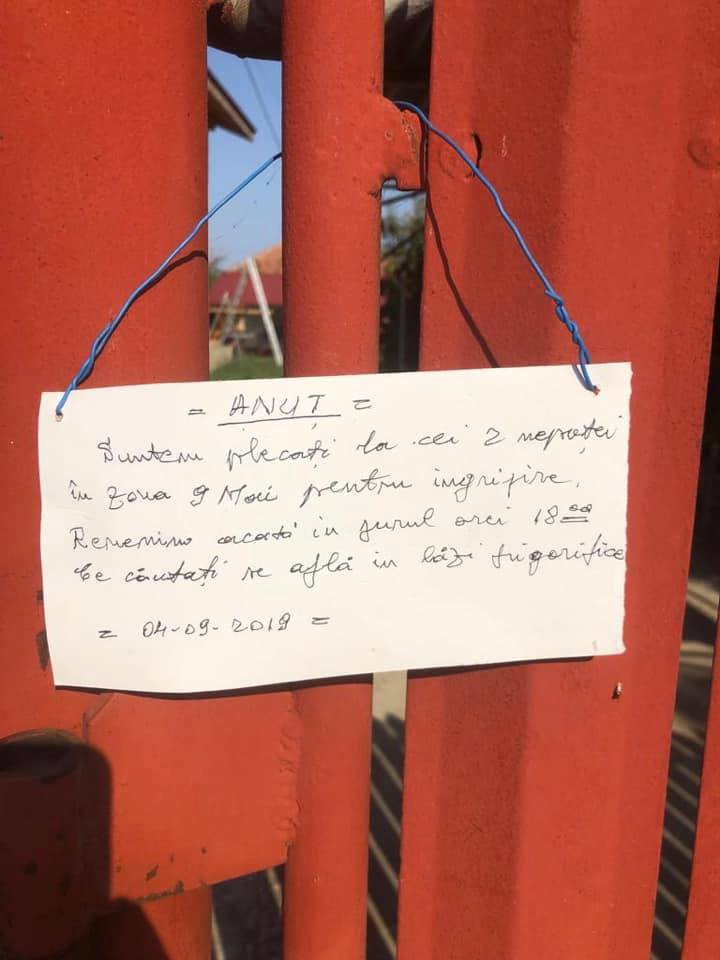 = ANUȚ =
Suntem plecați la cei 2 nepoței
în zona 9 Mai pentru ingrijire.
Revenim acasă in jurul orei 18ºº
Ce căutați se află in lăzi frigorifice
= 04-09-2019 =